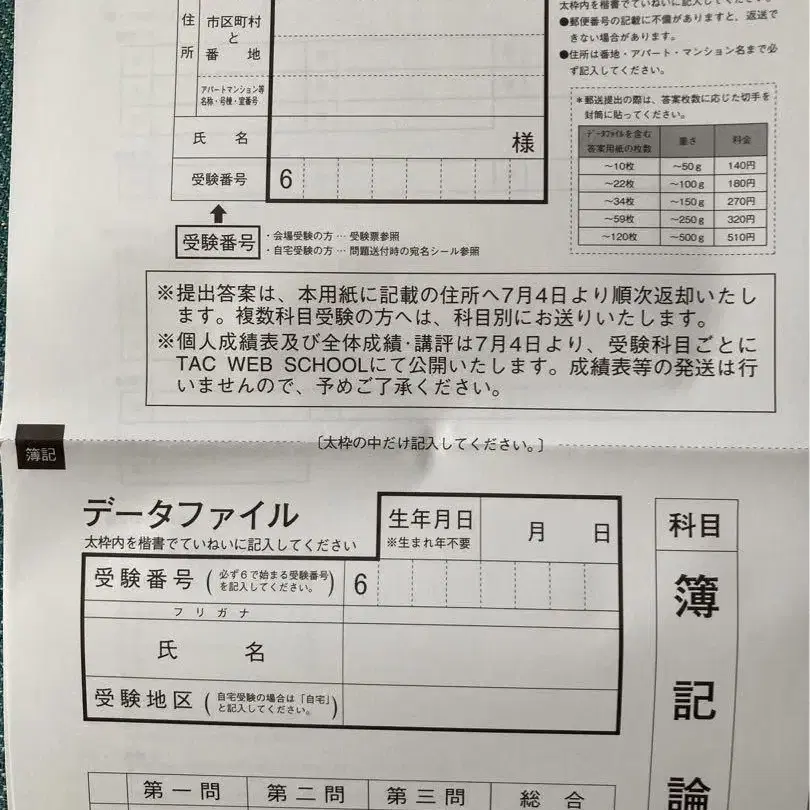 太枠内を楷書でていねいに記入してください。
●郵便番号の記載に不備がありますと、返送で
きない場合があります。
●住所は番地・アパート・マンション名まで必
ず記入してください。
住所
市区町村
と
番地
アパートマンション等
名称・号棟・室番号
氏名
様
受験番号
6
*郵送提出の際は、答案枚数に応じた切手を
封筒に貼ってください。
データファイルを含む
答案用紙の枚数 重さ 料金
〜10枚 〜50g 140円
〜22枚 〜100g 180円
〜34枚 〜150g 270円
〜59枚 〜250g 320円
〜120枚 〜500g 510円
受験番号
・会場受験の方…受験票参照
・自宅受験の方…問題送付時の宛名シール参照
※提出答案は、本用紙に記載の住所へ7月4日より順次返却いたし
ます。複数科目受験の方へは、科目別にお送りいたします。
※個人成績表及び全体成績・講評は7月4日より、受験科目ごとに
TAC WEB SCHOOLにて公開いたします。成績表等の発送は行
いませんので、予めご了承ください。
簿記
〔太枠の中だけ記入してください。〕
データファイル
太枠内を楷書でていねいに記入してください
生年月日
※生まれ年不要
月 日
受験番号(必ず6で始まる受験番号
を記入してください。)
6
フリガナ
氏名
受験地区(自宅受験の場合は「自宅」
と記入してください。)
科目
簿記論
第一問 第二問 第三問 総合